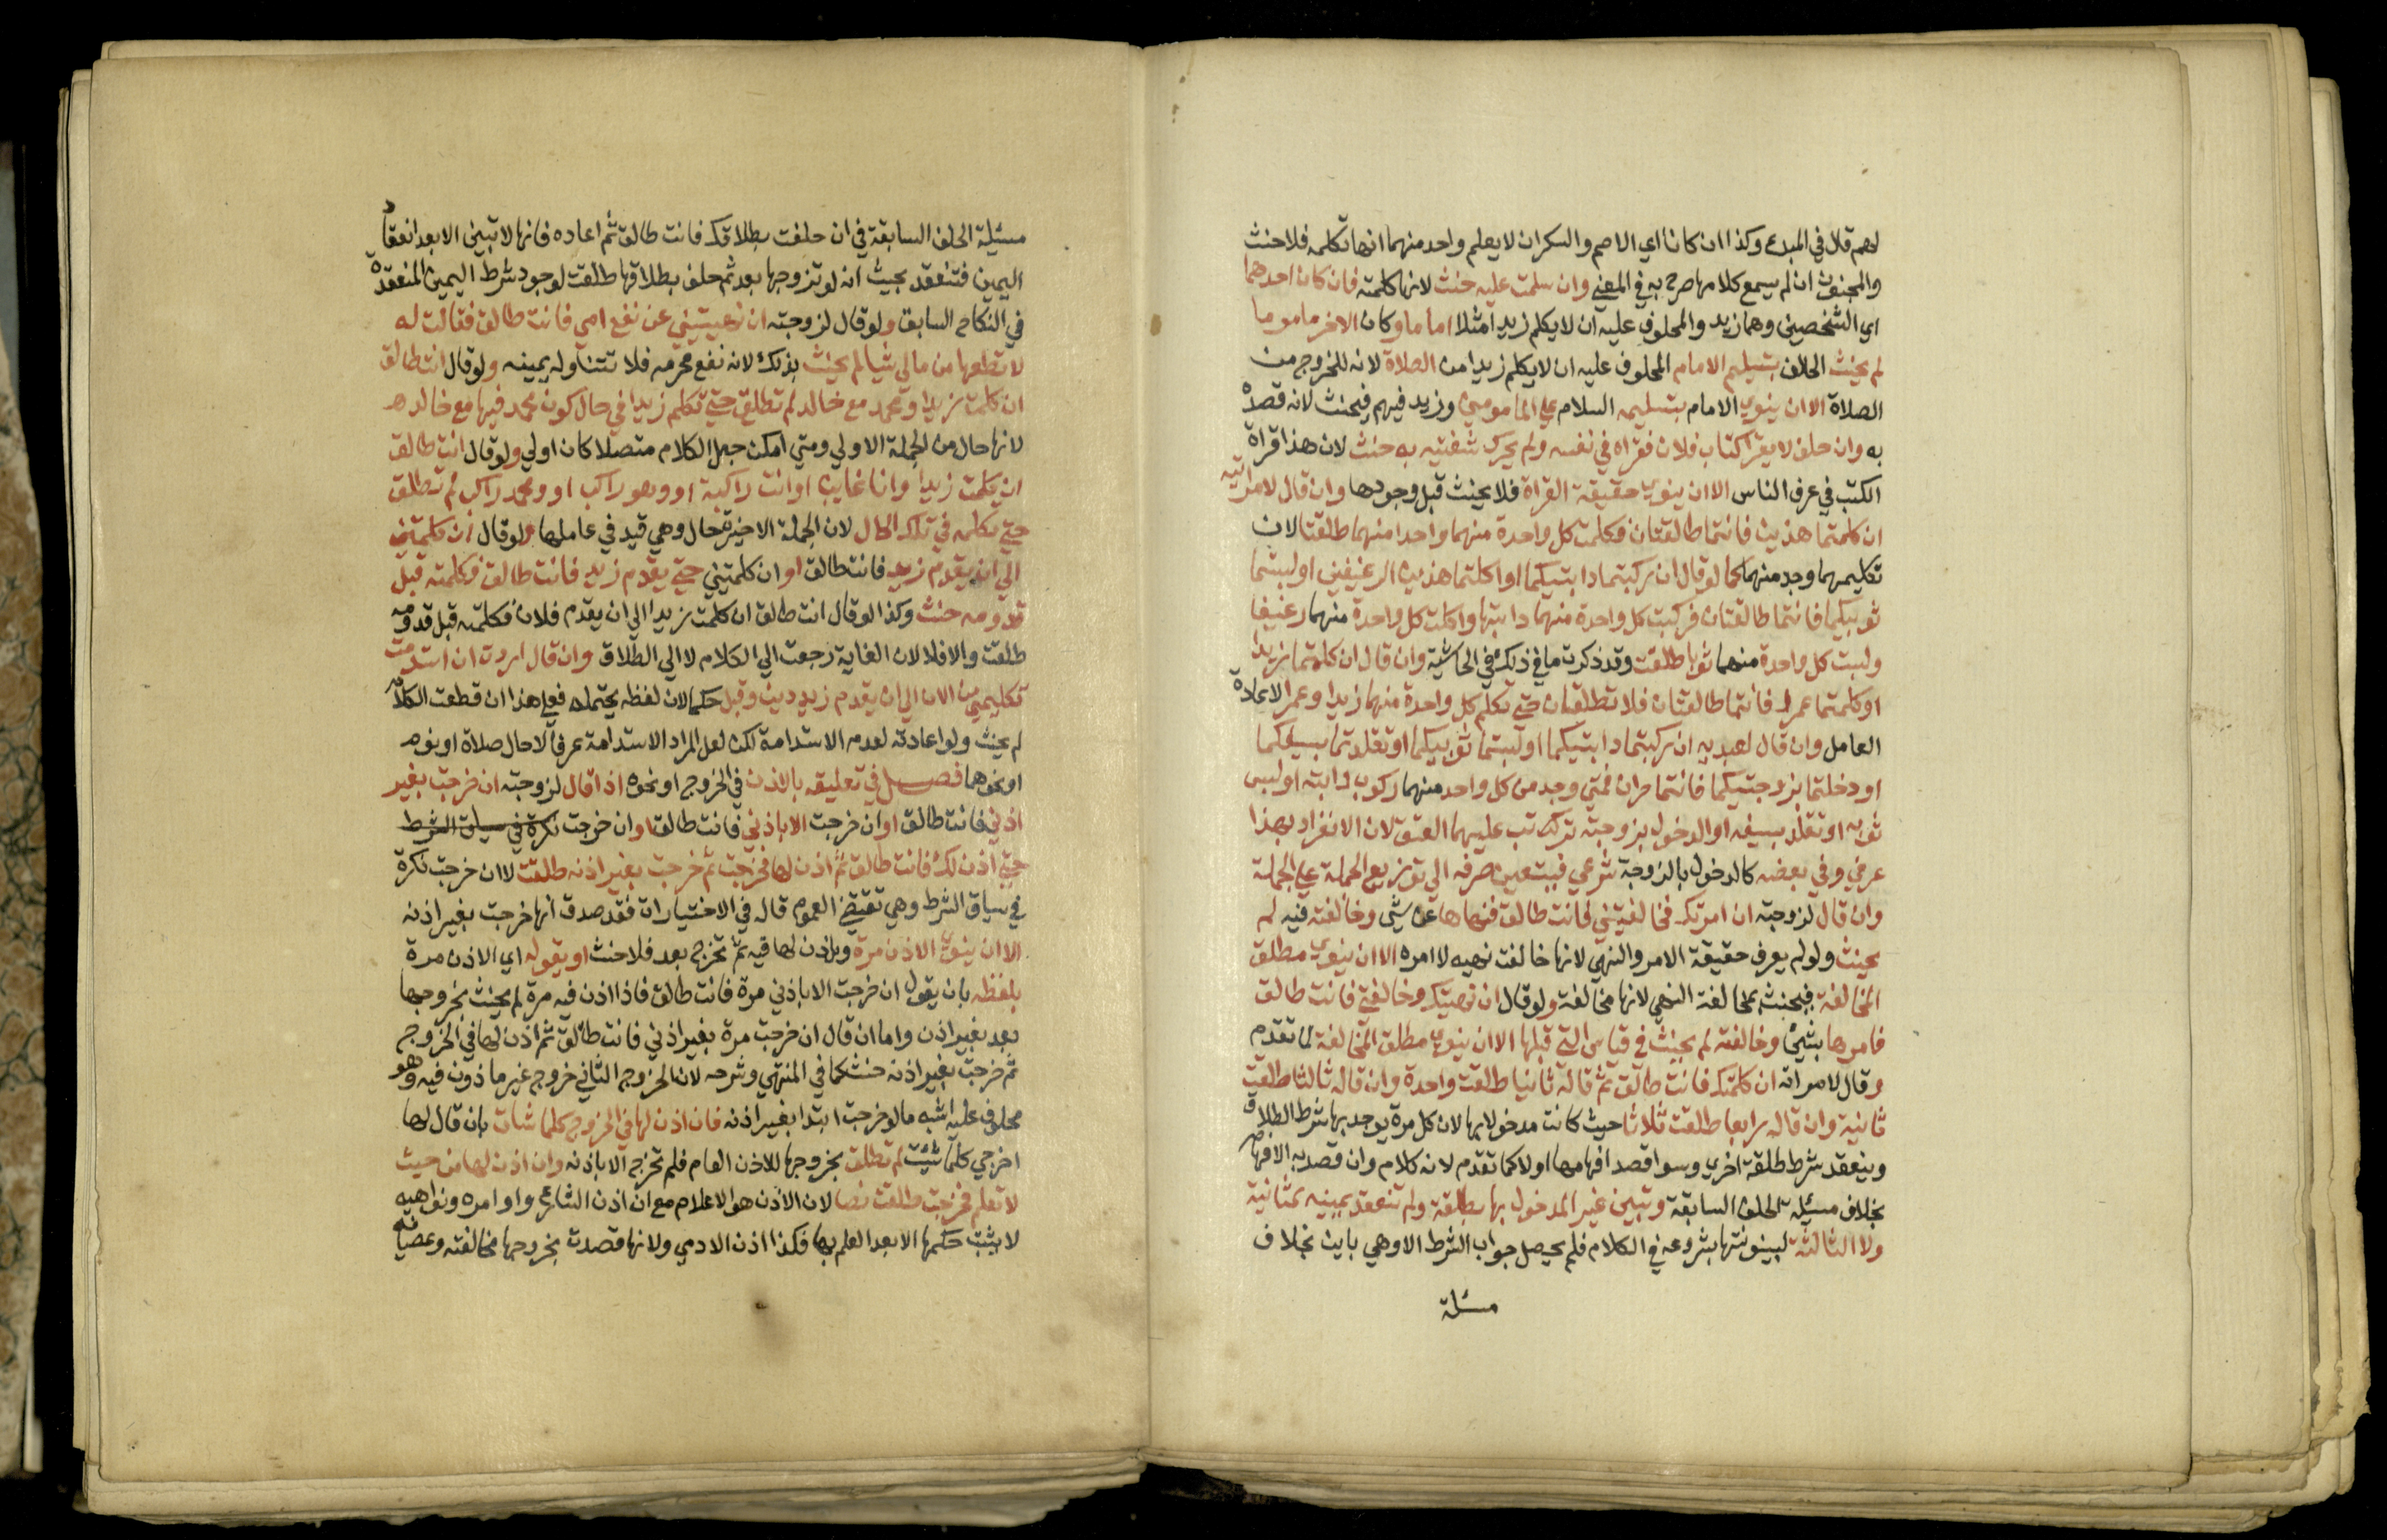 لهم قال في المبدع وكذا ان كانا اي الاصم والسكران لا يعلم واحد منهما انها تكلمه فلا حنث
والمجنون ان لم يسمع كلامها صرح به في المغني وان سلمت عليه حنث لانها كلمته فان كان احدهما
اي الشخصين وهما زيد والمحلوف عليه ان لا يكلم زيدا مثلا اماما وكان الاخر ماموما
لم يحنث الحالف بتسليم الامام المحلوف عليه ان لا يكلم زيدا من الصلاة لانه للخروج من
الصلاة الا ان ينوي الامام بتسليمه السلام علي المامومين وزيد فيهم فيحنث لانه قصده
به وان حلف لا يقرا كتاب فلان فقراه في نفسه ولم يحرك شفتيه به حنث لان هذا قراة
الكتب في عرف الناس الا ان ينوي حقيقة القراة فلا يحنث قبل وجودها وان قال لامراتيه
ان كلمتما هذين فانتما طالقتان فكلمت كل واحدة منهما واحدا منهما طلقتا لان
تكليمهما وجد منهما كما لو قال ان ركبتما دابتيكما او اكلتما هذين الرغيفين او لبستما
ثوبيكما فانتما طالقتان فركبت كل واحدة منهما دابتها واكلت كل واحدة منهما رغيفا
ولبست كل واحدة منهما ثوبا طلقت وقد ذكرت ما في ذلك في الحاشية وان قال ان كلمتما زيدا
او كلمتما عمرا فانتما طالقتان فلا تطلقان حتي تكلم كل واحدة منهما زيدا وعمرا لاعادة
العامل وان قال لعبديه ان ركبتما دابتيكما او لبستما ثوبيكما او تقلدتما بسيفكما
او دخلتما بزوجتيكما فانتما حران فمتي وجد من كل واحد منهما ركوب دابته او لبس
ثوبه او تقلد بسيفه او الدخول بزوجته ترتب عليهما العتق لان الانفراد بهذا
عرفي وفي بعضه كالدخول بالزوجة شرعي فيتعين صرفه الي توزيع الجملة علي الجملة
وان قال لزوجته ان امرتك فخالفتيني فانت طالق فنهاها عن شي وخالفته فيه لم
يحنث ولو لم يعرف حقيقة الامر والنهي لانها خالفت نهيه لا امره الا ان ينوي مطلق
المخالفة فيحنث بمخالفة النهي لانها مخالفة ولو قال ان نهيتك وخالفتي فانت طالق
فامرها بشي وخالفته لم يحنث في قياس التي قبلها الا ان ينوي مطلق المخالفة لما تقدم
وقال لامراته ان كلمتك فانت طالق ثم قاله ثانيا طلقت واحدة وان قاله ثالثا طلقت
ثانية وان قاله رابعا طلقت ثلاثا حيث كانت مدخولا بها لان كل مرة يوجد بها شرط الطلاق
وينعقد شرط طلقة اخري وسوا قصد افهامها اولا كما تقدم لانه كلام وان قصد به الافهام
بخلاف مسئلة الحلف السابقة وتبين غير المدخول بها بطلقة ولم تنعقد يمينه بمثانية
ولا الثالثة لبينونتها بشروعه في الكلام فلم يحصل جواب الشرط الا وهي باين بخلاف
مسئلة
مسئلة الحلف السابقة في ان حلفت بطلاقك فانت طالق ثم اعاده فانها لا تبين الا بعد انعقاد
اليمين فتنعقد بحيث انه لو تزوجها بعد ثم حلف بطلاقها طلقت لوجود شرط اليمين المنعقدة
في النكاح السابق ولو قال لزوجته ان نهيتيني عن نفع امي فانت طالق فقالت له
لا تطعها من مالي شيا لم يحنث بذلك لانه نفع محرم فلا تتناوله يمينه ولو قال انت طالق
ان كلمت زيدا ومحمد مع خالد لم تطلق حتي تكلم زيدا في حال كون محمد فيها مع خالد
لانها حال من الجملة الاولي ومتي امكن جعل الكلام متصلا كان اولي ولو قال انت طالق
ان كلمت زيدا وانا غايب او انت راكبة او وهو راكب او ومحمد راكب لم تطلق
حتي تكلمه في تلك الحال لان الجملة الاخيرة حال وهي قيد في عاملها ولو قال ان كلمتني
الي ان يقدم زيد فانت طالق او ان كلمتيني حتي يقدم زيد فانت طالق فكلمته قبل
قدومه حنث وكذا لو قال انت طالق ان كلمت زيدا الي ان يقدم فلان فكلمته قبل قدومه
طلقت والا فلا لان الغاية رجعت الي الكلام لا الي الطلاق وان قال اردت ان استدمت
تكليمي من الان الي ان يقدم زيد دين وقبل حكما لان لفظه يحتمله فعلي هذا ان قطعت الكلام
لم يحنث ولو اعادته لعدم الاستدامة لكن لعل المراد الاستدامة عرفا لا حال صلاة او نوم
او نحوهما فصل في تعليقه بالاذن في الخروج او نحوه اذا قال لزوجته ان خرجت بغير
اذني فانت طالق او ان خرجت الا باذني فانت طالق او ان خرجت نكرة في سياق الشرط
حتي اذن لك فانت طالق ثم اذن لها فخرجت ثم خرجت بغير اذنه طلقت لان خرجت نكرة
في سياق الشرط وهي تقتضي العموم قاله في الاختيارات فقد صدق انها خرجت بغير اذنه
الا ان ينوي الاذن مرة وياذن لها فيه ثم تخرج بعد فلا حنث او يقوله اي الاذن مرة
بلفظه بان يقول ان خرجت الا باذني مرة فانت طالق فاذا اذن فيه مرة لم يحنث بخروجها
بعد بغير اذن واما ان قال ان خرجت مرة بغير اذني فانت طالق ثم اذن لها في الخروج
ثم خرجت بغير اذنه حنث كما في المنتهي وشرحه لان الخروج الثاني خروج غير ماذون فيه وهو
محلوف عليه اشبه ما لو خرجت ابتدا بغير اذنه فان اذن لها في الخروج كلما شات بان قال لها
اخرجي كلما شئت لم تطلق بخروجها للاذن العام فلم تخرج الا باذنه وان اذن لها من حيث
لا تعلم فخرجت طلقت نصا لان الاذن هو الاعلام مع ان اذن الشارع واوامره ونواهيه
لا يثبت حكمها الا بعد العلم بها فكذا اذن الادمي ولانها قصدت بخروجها مخالفته وعصيانه